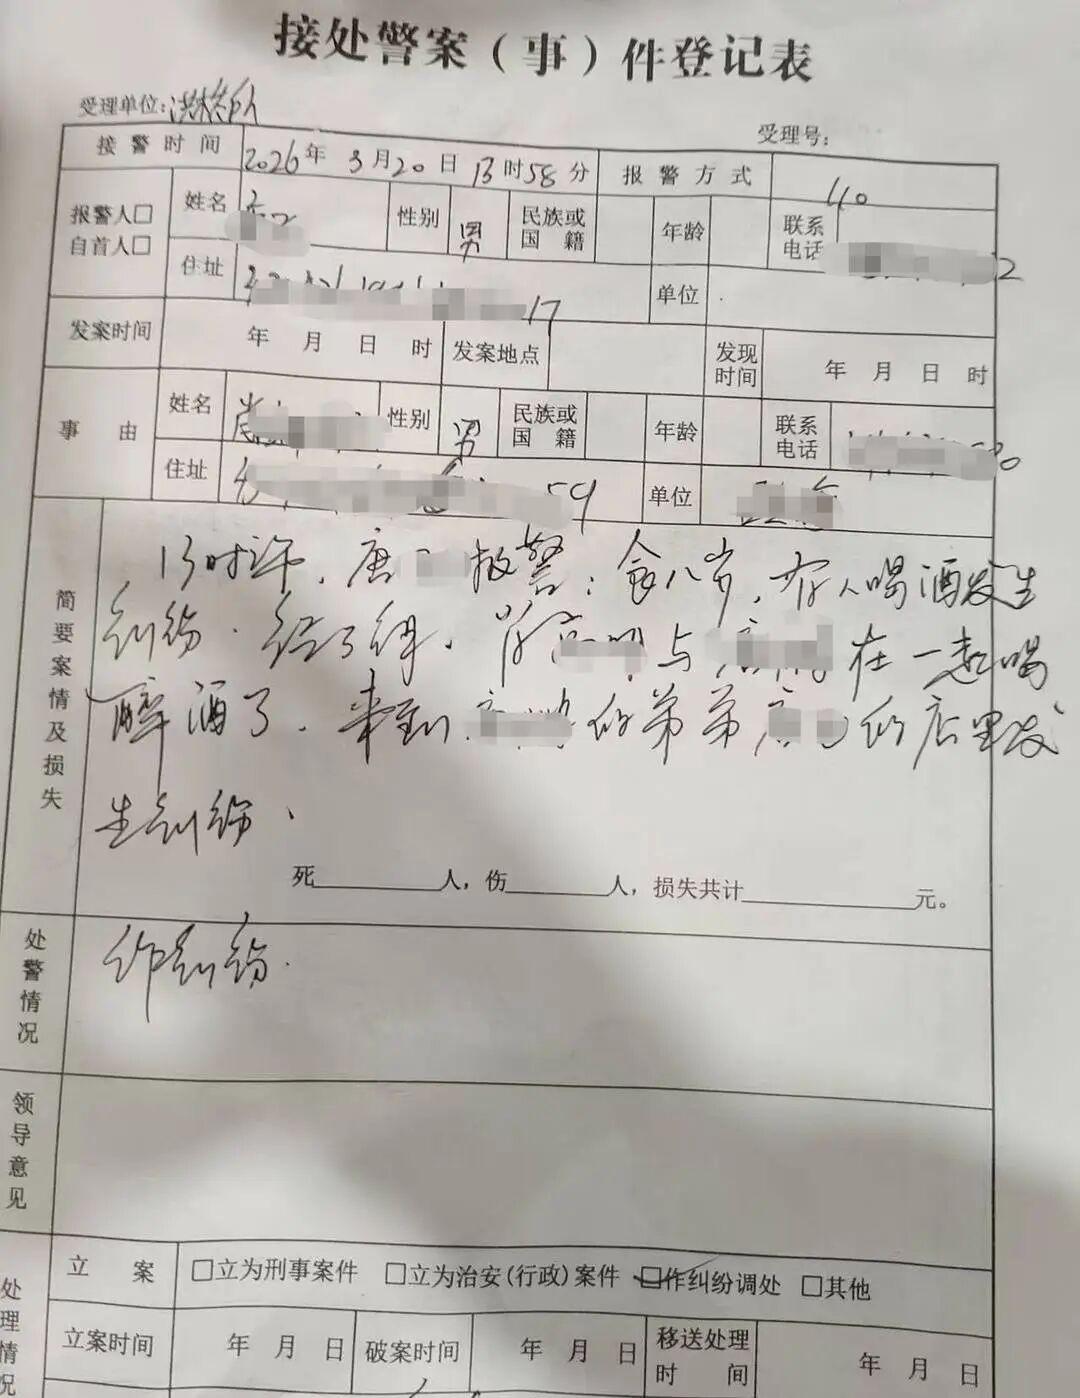 接处警案（事）件登记表
受理单位: 受理号:
接警时间 2026年 3月20日 13时58分 报警方式 110
报警人□ 自首人□ 姓名 性别 男 民族或国籍 年龄 联系电话 2
住址 17 单位
发案时间 年 月 日 时 发案地点 发现时间 年 月 日 时
事由 姓名 性别 男 民族或国籍 年龄 联系电话
住址 59 单位
简要案情及损失
13时许，唐 报警：有人喝酒发生
纠纷．经了解， 与 在一起喝
醉酒了．来到 的弟弟 的店里发
生纠纷．
死 人，伤 人，损失共计 元。
处警情况 作纠纷．
领导意见
处理情况
立案 □立为刑事案件 □立为治安(行政)案件 □作纠纷调处 □其他
立案时间 年 月 日 破案时间 年 月 日 移送处理时间 年 月 日